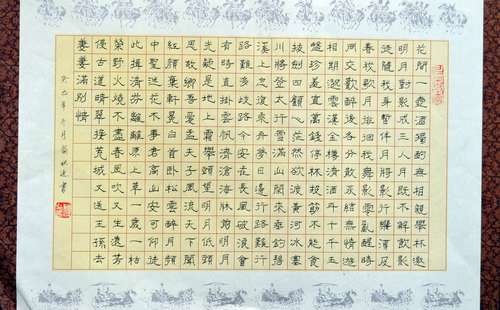 花間一壺酒獨酌無相親舉杯邀
明月對影成三人月既不解飲影
徒隨我身暫伴月將影行樂須及
春我歌月徘徊我舞影零亂醒時
同交歡醉後各分散永結無情遊
相期邈雲漢金樽清酒斗十千玉
盤珍羞直萬錢停杯投箸不能食
拔劍四顧心茫然欲渡黃河冰塞
川將登太行雪滿山閒來垂釣碧
溪上忽復乘舟夢日邊行路難行
路難多歧路今安在長風破浪會
有時直掛雲帆濟滄海床前明月
光疑是地上霜舉頭望明月低頭
思故鄉吾愛孟夫子風流天下聞
紅顏棄軒冕白首臥松雲醉月頻
中聖迷花不事君高山安可仰徒
此揖清芬離離原上草一歲一枯
榮野火燒不盡春風吹又生遠芳
侵古道晴翠接荒城又送王孫去
萋萋滿別情
癸巳年冬月書